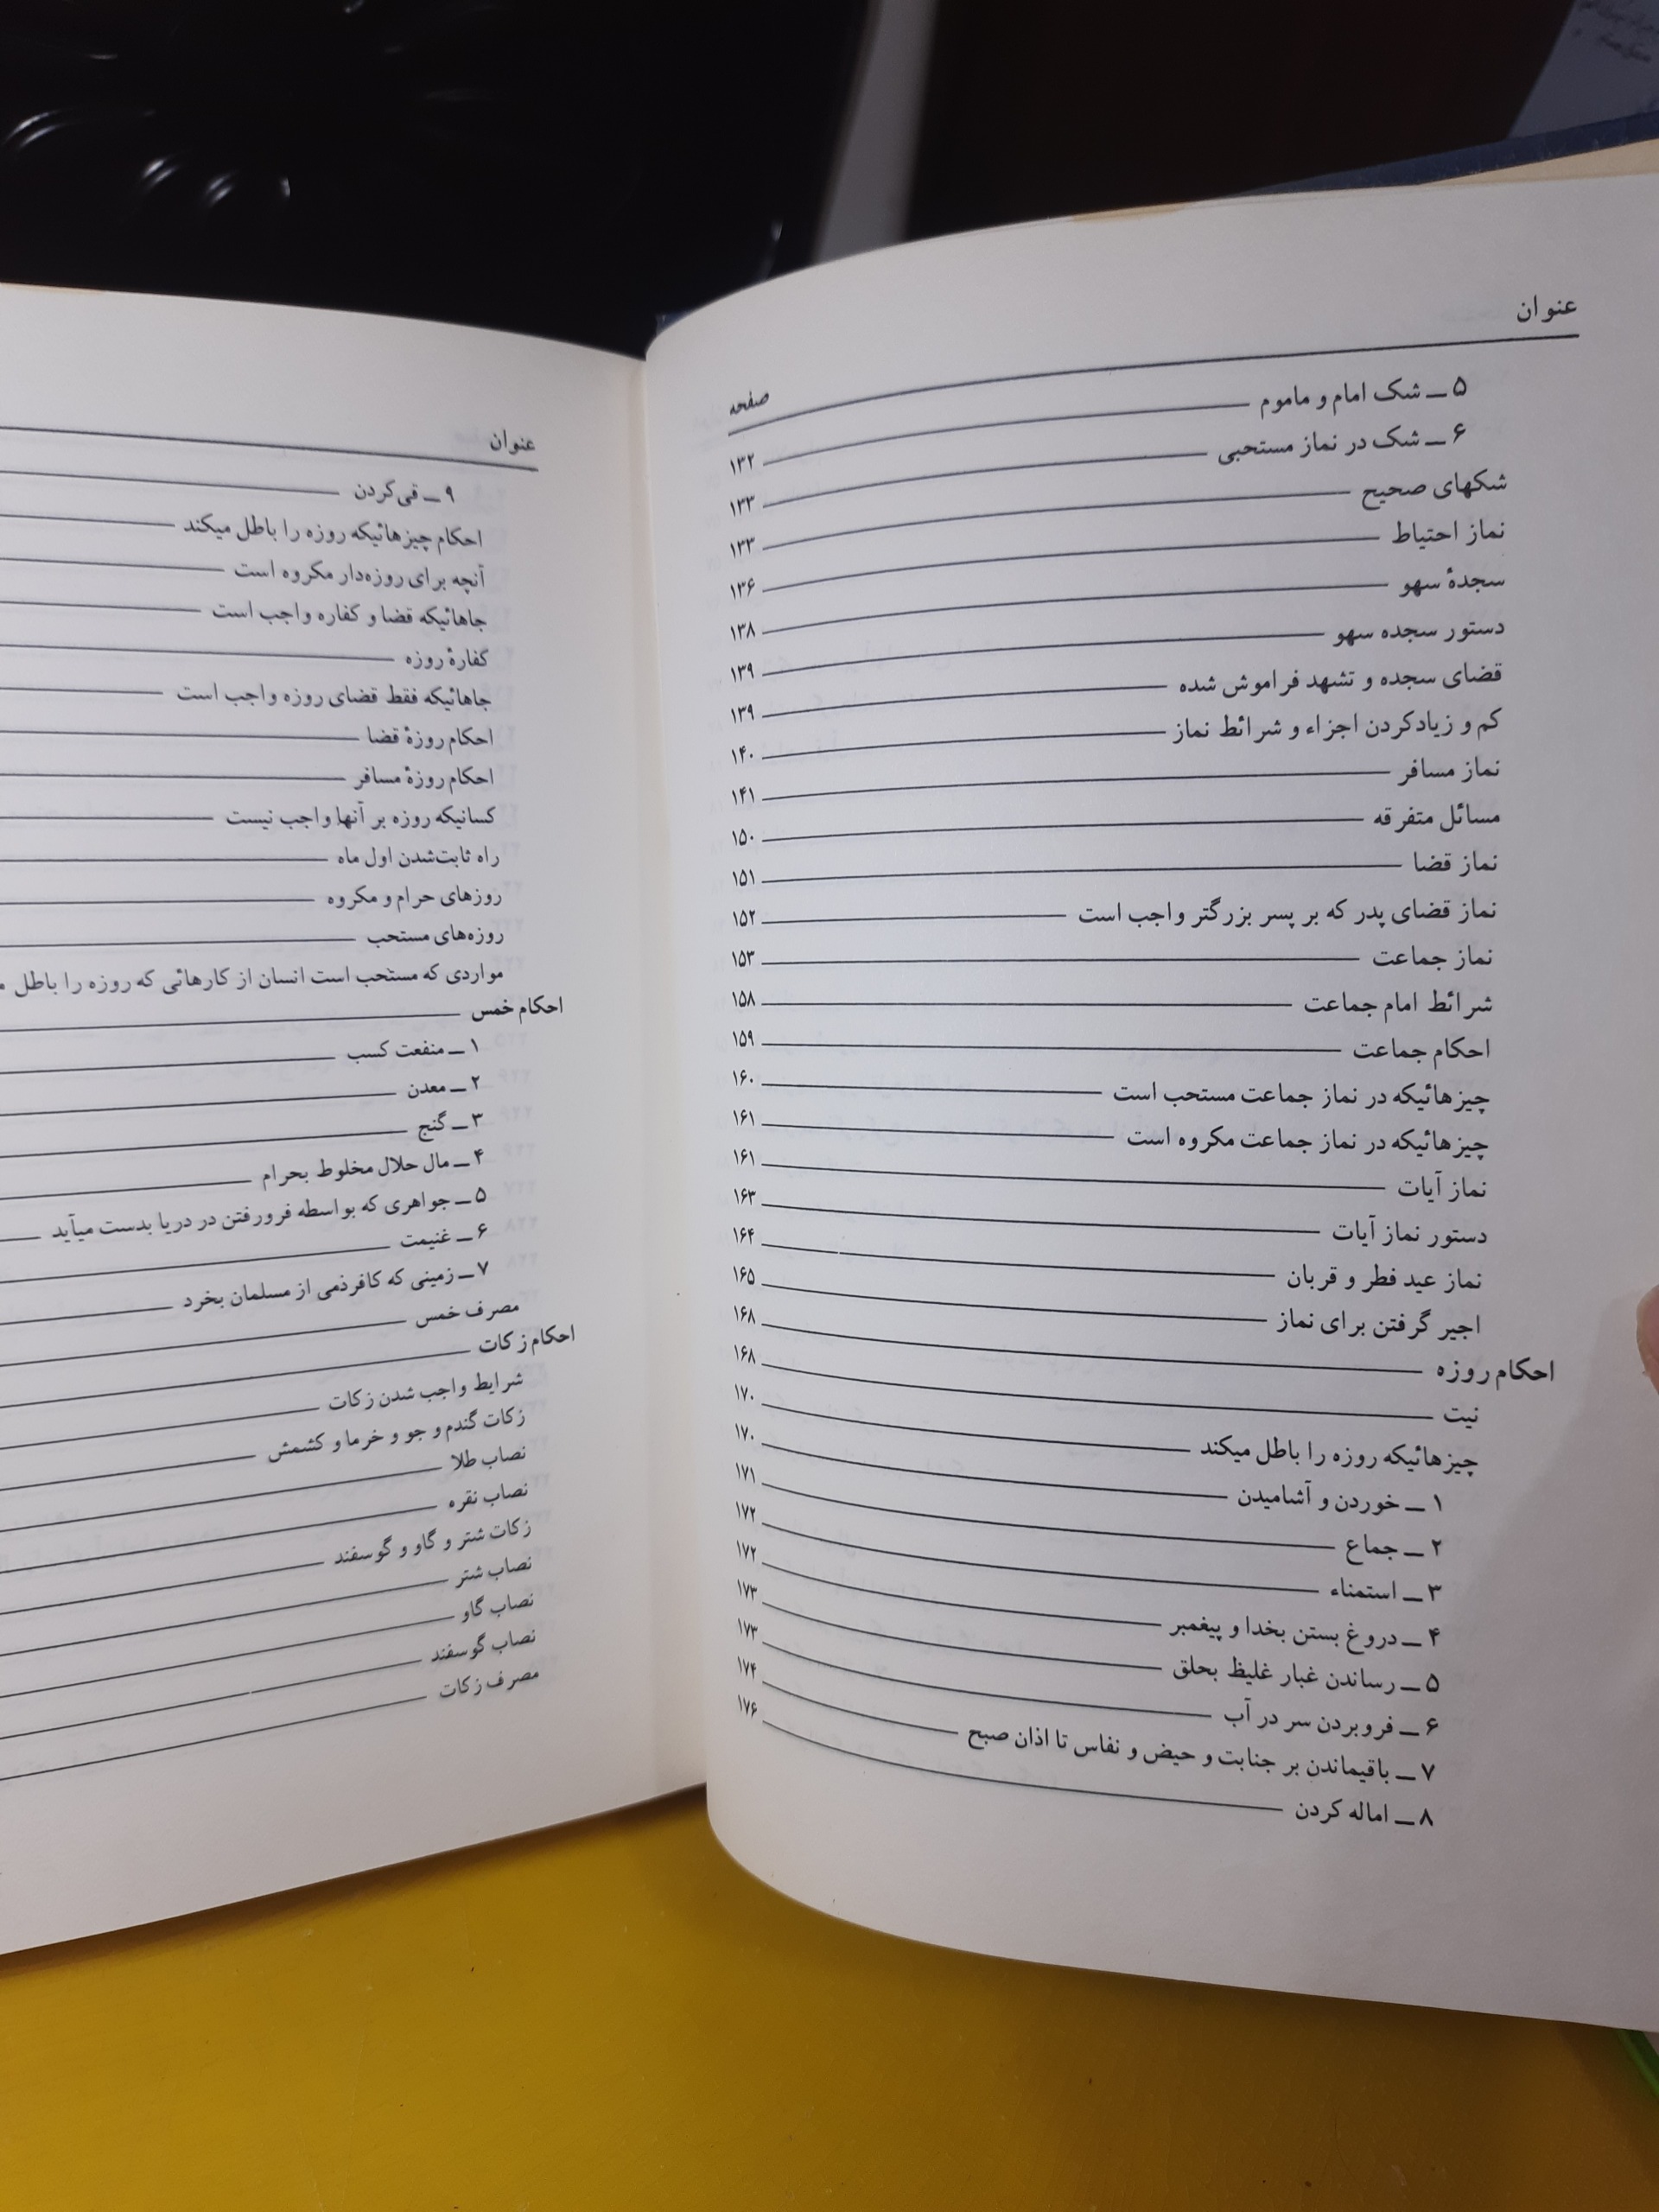 عنوان صفحه
۵ ـ شک امام و ماموم ۱۳۲
۶ ـ شک در نماز مستحبی ۱۳۳
شکهای صحیح ۱۳۳
نماز احتیاط ۱۳۶
سجدهٔ سهو ۱۳۸
دستور سجده سهو ۱۳۹
قضای سجده و تشهد فراموش شده ۱۳۹
کم و زیادکردن اجزاء و شرائط نماز ۱۴۰
نماز مسافر ۱۴۱
مسائل متفرقه ۱۵۰
نماز قضا ۱۵۱
نماز قضای پدر که بر پسر بزرگتر واجب است ۱۵۲
نماز جماعت ۱۵۳
شرائط امام جماعت ۱۵۸
احکام جماعت ۱۵۹
چیزهائیکه در نماز جماعت مستحب است ۱۶۰
چیزهائیکه در نماز جماعت مکروه است ۱۶۱
نماز آیات ۱۶۱
دستور نماز آیات ۱۶۳
نماز عید فطر و قربان ۱۶۴
اجیر گرفتن برای نماز ۱۶۵
احکام روزه ۱۶۸
نیت ۱۶۸
چیزهائیکه روزه را باطل میکند ۱۷۰
۱ ـ خوردن و آشامیدن ۱۷۰
۲ ـ جماع ۱۷۱
۳ ـ استمناء ۱۷۲
۴ ـ دروغ بستن بخدا و پیغمبر ۱۷۲
۵ ـ رساندن غبار غلیظ بحلق ۱۷۳
۶ ـ فروبردن سر در آب ۱۷۳
۷ ـ باقیماندن بر جنابت و حیض و نفاس تا اذان صبح ۱۷۴
۸ ـ اماله کردن ۱۷۶
عنوان
۹ ـ قی‌کردن
احکام چیزهائیکه روزه را باطل میکند
آنچه برای روزه‌دار مکروه است
جاهائیکه قضا و کفاره واجب است
کفارهٔ روزه
جاهائیکه فقط قضای روزه واجب است
احکام روزهٔ قضا
احکام روزهٔ مسافر
کسانیکه روزه بر آنها واجب نیست
راه ثابت‌شدن اول ماه
روزهای حرام و مکروه
روزه‌های مستحب
مواردی که مستحب است انسان از کارهائی که روزه را باطل
احکام خمس
۱ ـ منفعت کسب
۲ ـ معدن
۳ ـ گنج
۴ ـ مال حلال مخلوط بحرام
۵ ـ جواهری که بواسطه فرورفتن در دریا بدست میآید
۶ ـ غنیمت
۷ ـ زمینی که کافرذمی از مسلمان بخرد
مصرف خمس
احکام زکات
شرایط واجب شدن زکات
زکات گندم و جو و خرما و کشمش
نصاب طلا
نصاب نقره
زکات شتر و گاو و گوسفند
نصاب شتر
نصاب گاو
نصاب گوسفند
مصرف زکات